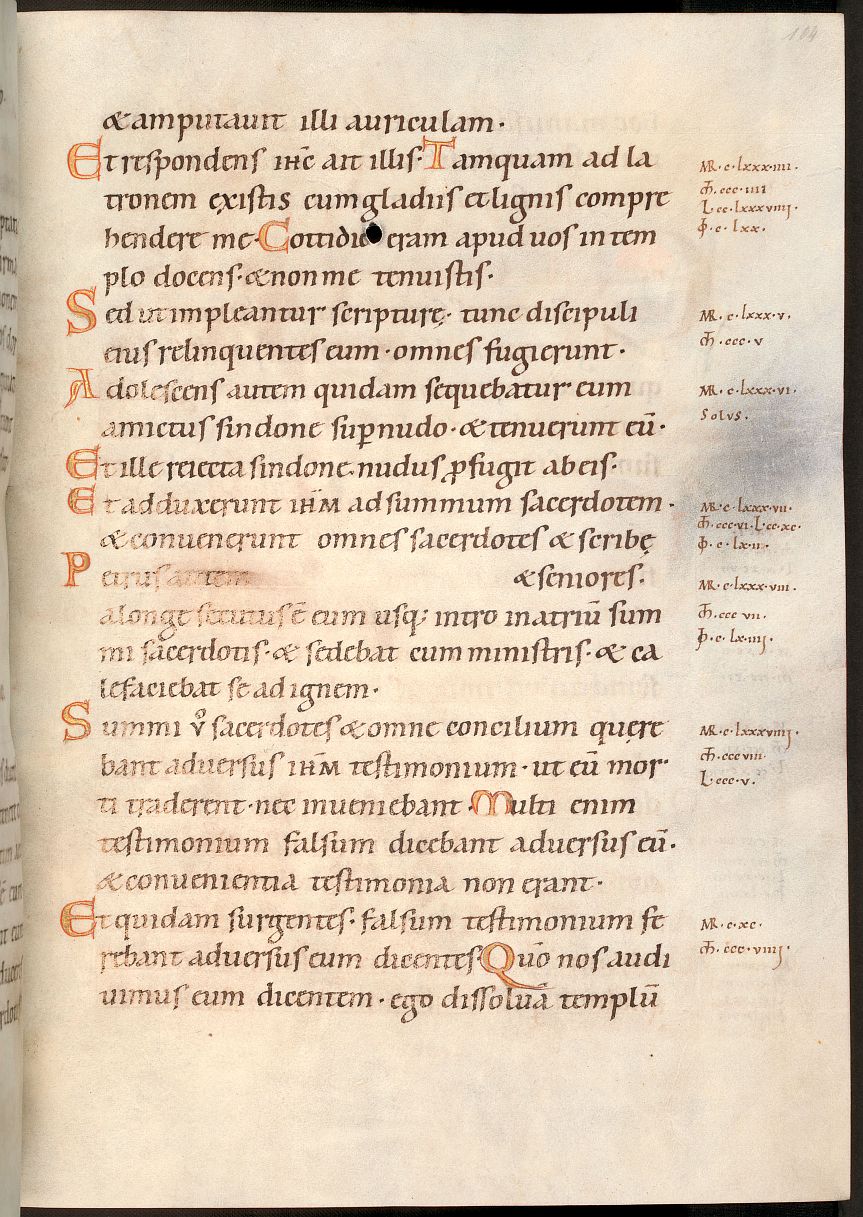 104
& amputauit illi auriculam·
Et respondens ihc̄ ait illis· Tamquam ad la
tronem existis cum gladiis et lignis compre
hendere me· Cottidie eram apud uos in tem
plo docens· & non me tenuistis·
Sed ut impleantur scripturę· tunc discipuli
eius relinquentes eum· omnes fugierunt·
Adolescens autem quidam sequebatur eum
amictus sindone sup̄ nudo· & tenuerunt eū·
Et ille reiecta sindone· nudus ꝓfugit ab eis·
Et adduxerunt ihm̄ ad summum sacerdotem·
& conuenerunt omnes sacerdotes & scribę
Petrus autem & seniores·
a longe secutus ē eum usq; intro in atriū sum
mi sacerdotis· & sedebat cum ministris· & ca
lefaciebat se ad ignem·
Summi v̊ sacerdotes & omne concilium quęre
bant aduersus ihm̄ testimonium· ut eū mor
ti traderent· nec inueniebant· Multi enim
testimonium falsum dicebant aduersus eū·
& conuenientia testimonia non erant·
Et quidam surgentes· falsum testimonium fe
rebant aduersus eum dicentes· Quō nos audi
uimus eum dicentem· ego dissoluā templū
MR· c· lxxx·iiii·
m̄· ccc· iiii
L· cc· lxxxviiij·
ꝓ· c· lxx·
MR· c· lxxx·v·
m̄· ccc· v
MR· c· lxxx·vi·
solus·
MR· c· lxxx·vii·
m̄· ccc·vi· L· cc·xc·
MR· c· lxxx·viii·
m̄· ccc vii·
MR· c· lxxxviiij·
m̄· ccc viii·
L· ccc·v·
MR· c· xc·
m̄· ccc· viiij·